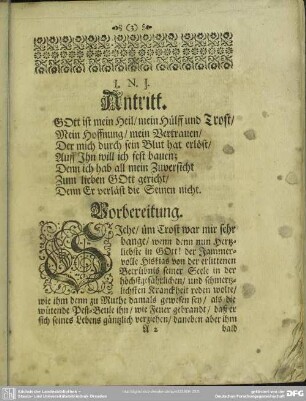 (3)
I. N. J.
Antritt.
GOtt ist mein Heil/ mein Hülff und Trost/
Mein Hoffnung/ mein Vertrauen/
Der mich durch sein Blut hat erlöst/
Auff Ihn will ich fest bauen;
Denn ich hab all mein Zuversicht
Zum lieben GOtt gericht/
Denn Er verläst die Seinen nicht.
Vorbereitung.
SIehe/ üm Trost war mir sehr
bange/ wenn denn nun Hertz-
liebste in GOtt! der Jammer-
volle Hiskias von der erlittenen
Betrübnis seiner Seele in der
höchstgefährlichen/ und schmertz-
lichsten Kranckheit reden wolte/
wie ihm denn zu Muthe damals gewesen sey/ als die
wütende Pest-Beule ihn/ wie Feuer gebrandt/ daß er
sich seines Lebens gäntzlich verziehen/ daneben aber ihm
A 2 bald